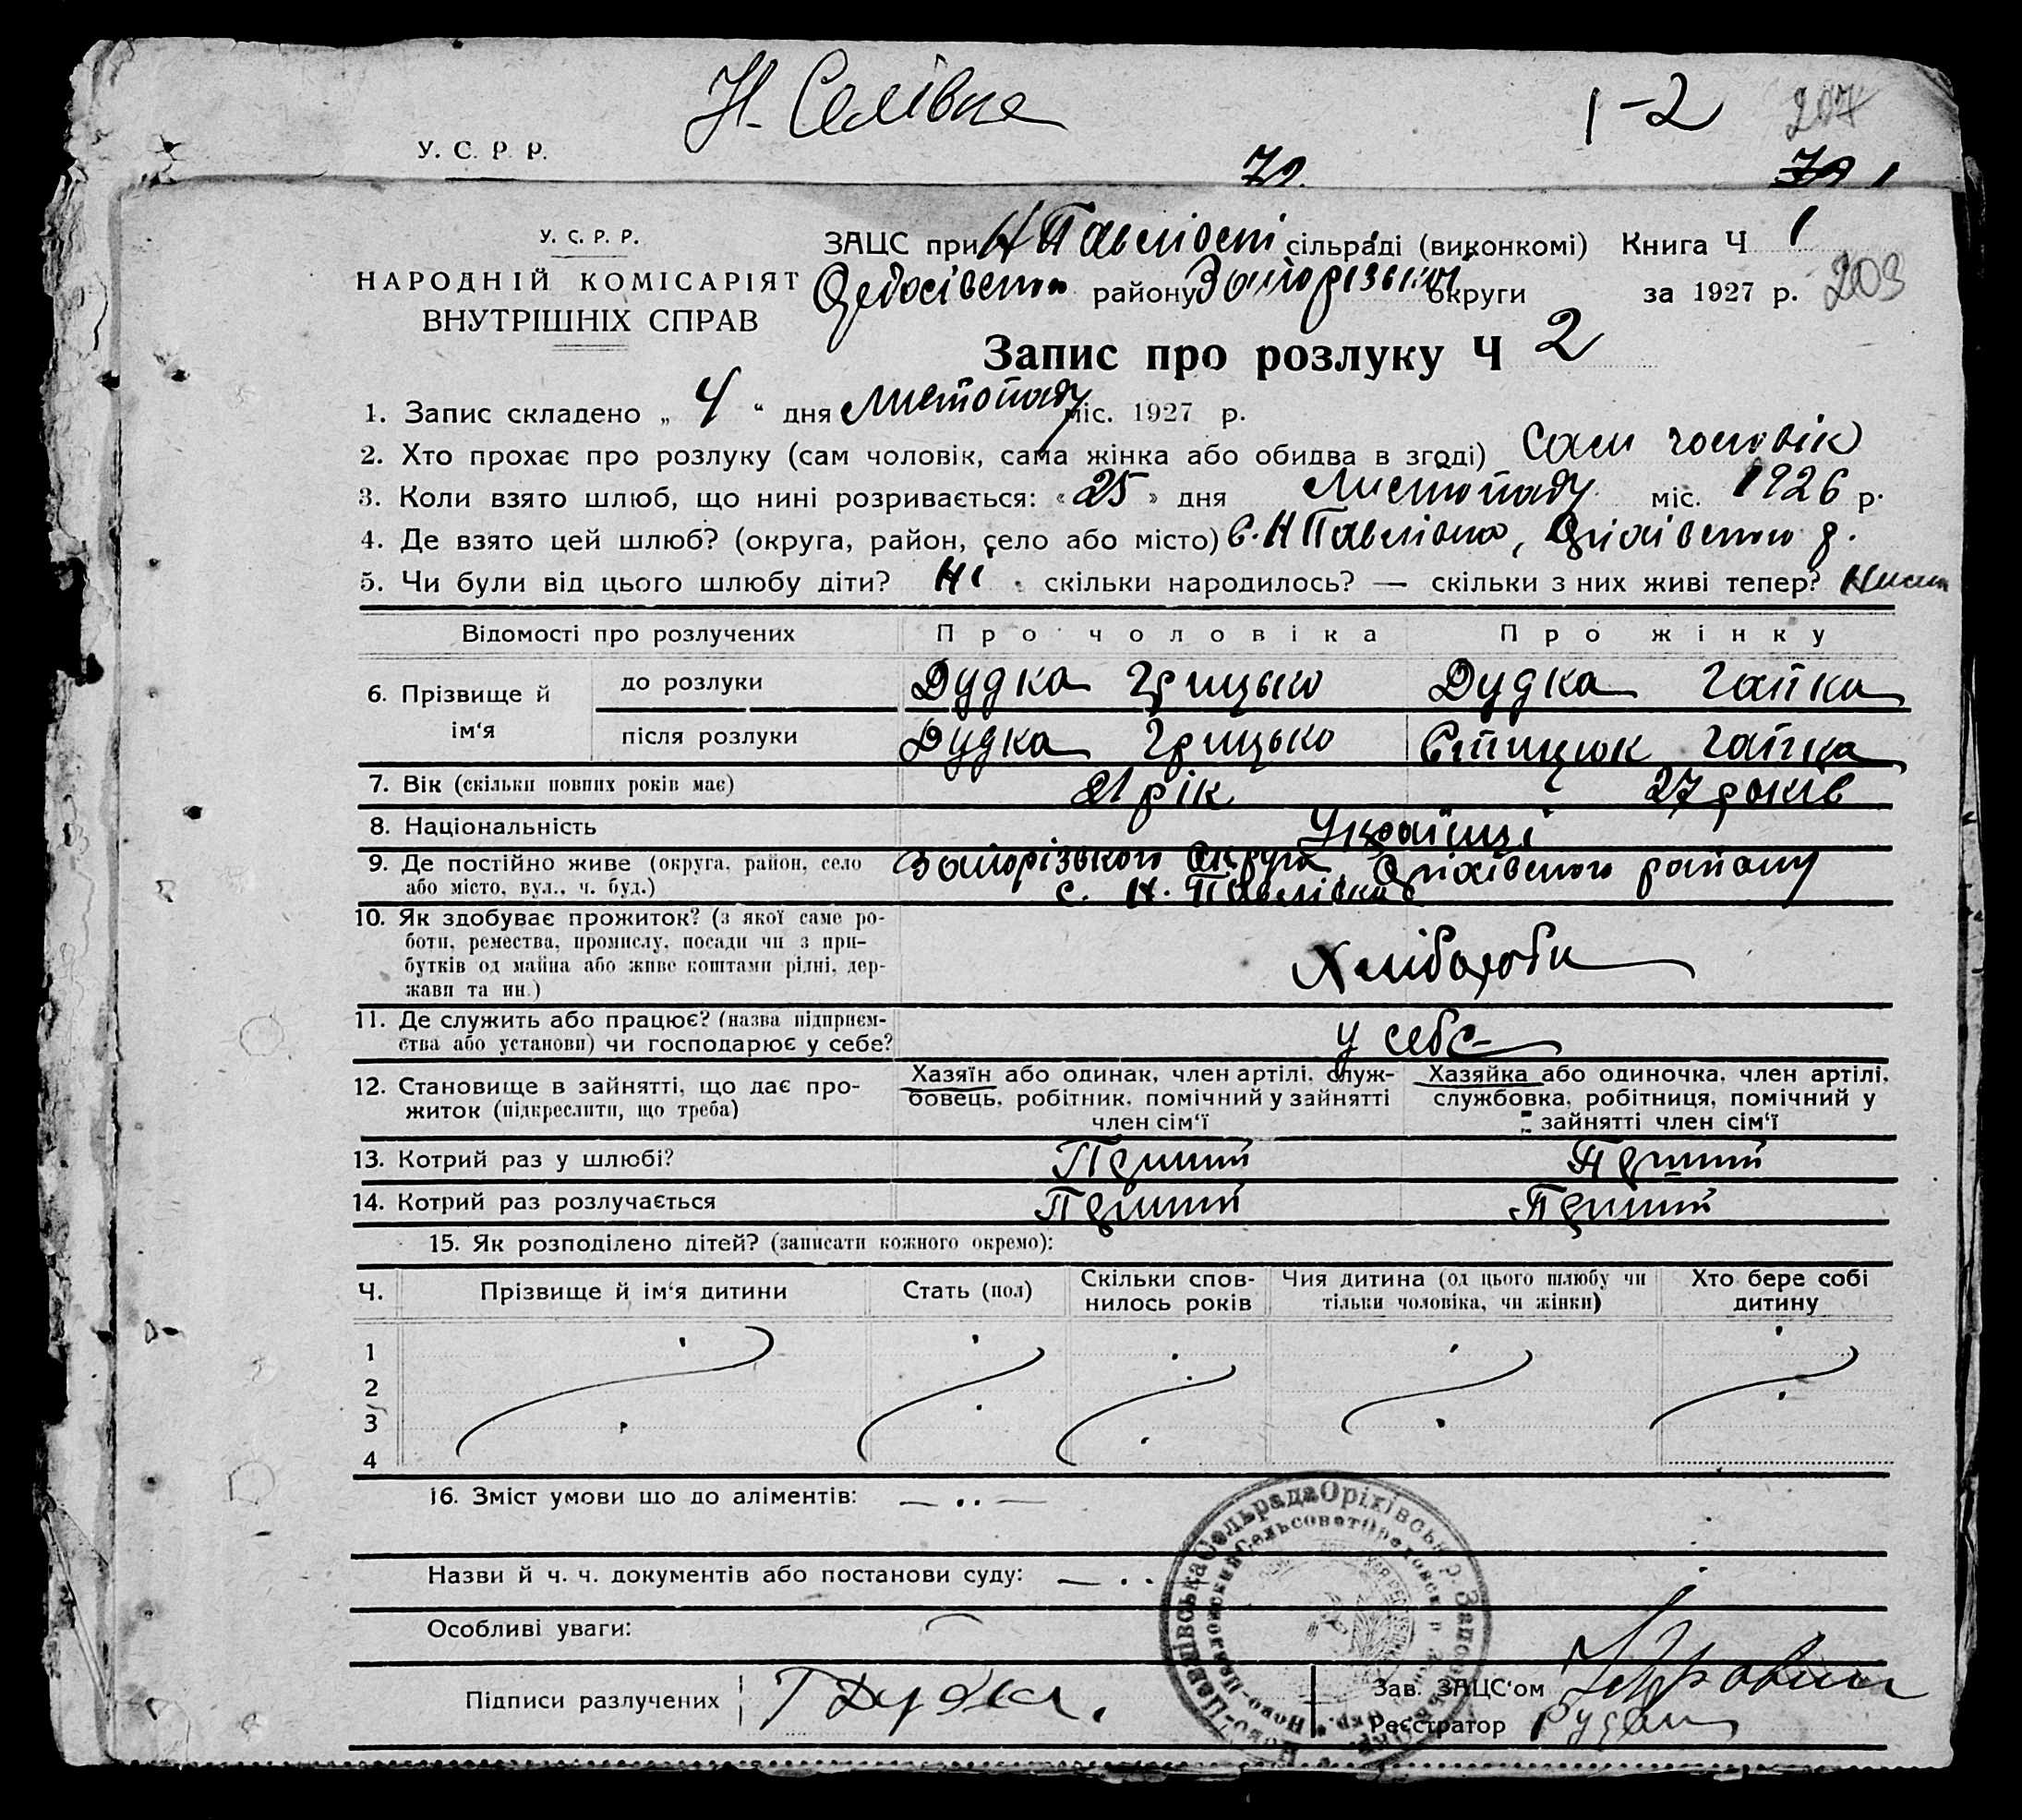 Н. Селівка 1-2 207
У. С. Р. Р.
72.
У. С. Р. Р.
ЗАЦС при Н Павлівськ сільраді (виконкомі) Книга Ч 1
НАРОДНІЙ КОМІСАРІЯТ
ВНУТРІШНІХ СПРАВ
району Запорізької округи за 1927 р. 203
Запис про розлуку Ч 2
1. Запис складено „ 4 “ дня Листопаду міс. 1927 р.
2. Хто прохає про розлуку (сам чоловік, сама жінка або обидва в згоді) Сам чоловік
3. Коли взято шлюб, що нині розривається: « 25 » дня Листопаду міс. 1926 р.
4. Де взято цей шлюб? (округа, район, село або місто) с. Н Павлівка, Оріхівського р.
5. Чи були від цього шлюбу діти? Ні. скільки народилось? — скільки з них живі тепер?
Відомості про розлучених Про чоловіка Про жінку
6. Прізвище й ім‘я до розлуки Дудка Грицько Дудка Гапка
після розлуки Дудка Грицько Гапка
7. Вік (скільки повних років має) 21 рік 27 років
8. Національність Українці
9. Де постійно живе (округа, район, село Запорізького Округа, Оріхівського району
або місто, вул., ч. буд.) с. Н. Павлівка
10. Як здобуває прожиток? (з якої саме ро-
боти, ремества, промислу, посади чи з при-
бутків од майна або живе коштами рідні, дер- Хлібороби
жави та ин.)
11. Де служить або працює? (назва підприєм-
ства або установи) чи господарює у себе? у себе
12. Становище в зайнятті, що дає про-
житок (підкреслити, що треба)
Хазяїн або одинак, член артілі, служ-
бовець, робітник, помічний у зайнятті
член сім‘ї
Хазяйка або одиночка, член артілі,
службовка, робітниця, помічний у
зайнятті член сім‘ї
13. Котрий раз у шлюбі? Перший Перший
14. Котрий раз розлучається Перший Перший
15. Як розподілено дітей? (записати кожного окремо):
Ч. Прізвище й ім‘я дитини Стать (пол) Скільки спов-нилось років Чия дитина (од цього шлюбу чи тільки чоловіка, чи жінки) Хто бере собі дитину
1
2
3
4
16. Зміст умови що до аліментів: — .. —
Назви й ч. ч. документів або постанови суду: — . .
Особливі уваги:
Підписи разлучених Г Дудка.
Зав. ЗАЦС‘ом
Реєстратор
Ново-Павлівська Сельрада Оріхівськ. р. Запорізьк. Окр.
Ново-Павловский Сельсовет Ореховск. р.